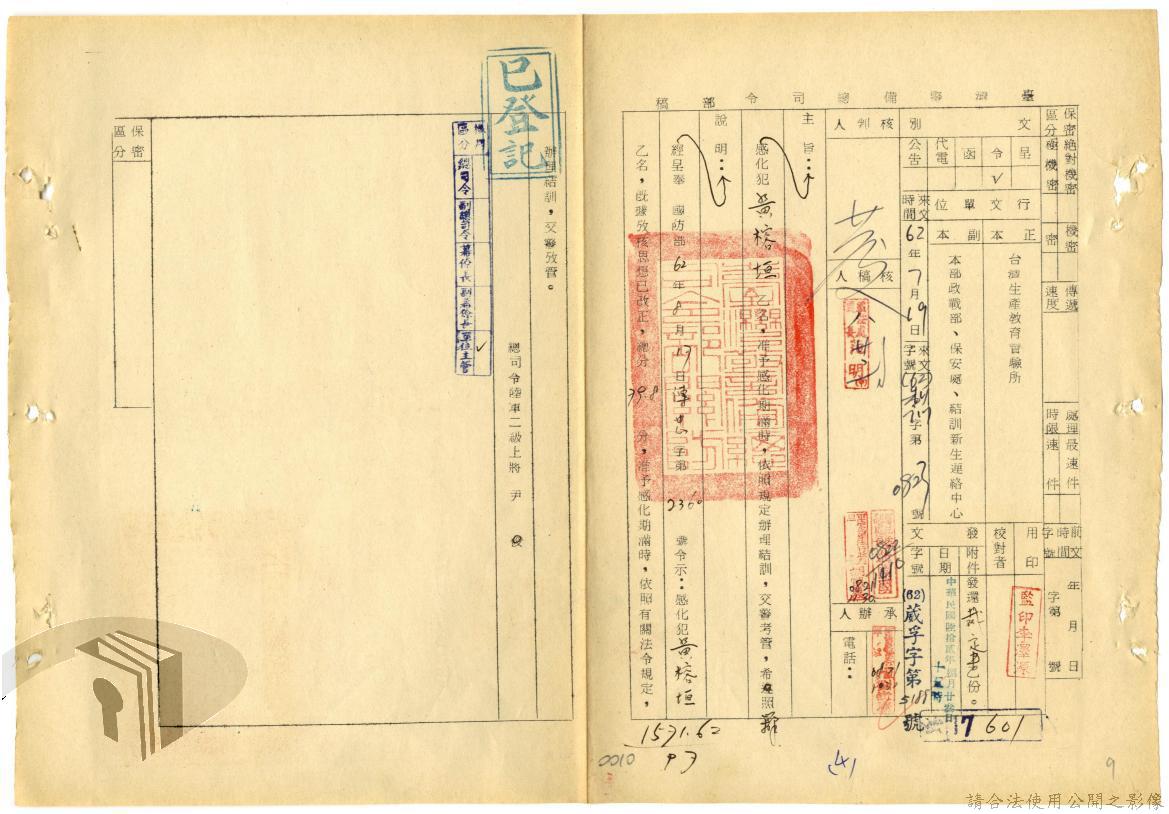 臺灣警備總司令部稿
保密區分
絕對機密
極機密
機密
密
傳遞速度
處理時限
最速件
速件
前文時間字號
年月日
字第號
文別
呈
令
ˇ
函
代電
公告
行文單位
正本
台灣生產教育實驗所
副本
本部政戰部、保安處、結訓新生連絡中心
來文時間
62年7月19日
來文字號
字第
號
用印
監印李澤源
校對者
發文
附件
發還裁定書乙份。
日期
字號
(62)葳孚字第5189號
7601
核判人
核稿人
承辦人
電話：
主旨：感化犯黃榕垣乙名，准予感化期滿時，依照規定辦理結訓，交警考管，希照辦
說明：
經呈奉國防部62年8月17日 字第2360號令示：感化犯黃榕垣
乙名，既據攷核思想已改正，總分79.8分，准予感化期滿時，依照有關法令規定，
辦理結訓，交警攷管。
總司令陸軍二級上將尹
已登記
區分
總司令
副總司令
參謀長
副參謀長
單位主管
ˇ
保密區分
1571.62
0010
9
請合法使用公開之影像